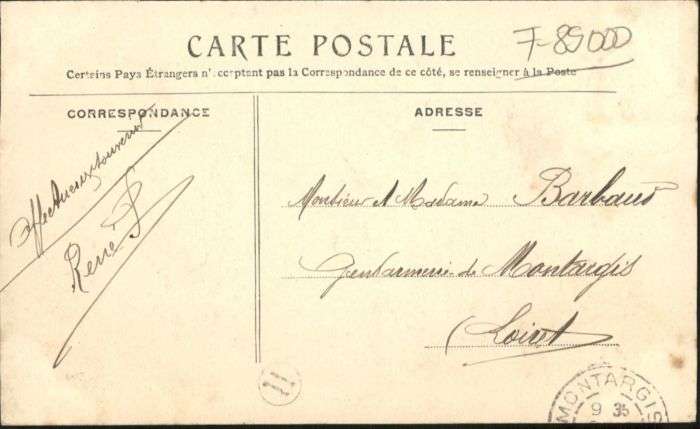 CARTE POSTALE
F-85000
Certains Pays Étrangers n'acceptant pas la Correspondance de ce côté, se renseigner à la Poste
CORRESPONDANCE
affectueux souvenir
René
ADRESSE
Monsieur et Madame Barbaud
Gendarmerie de Montargis
(Loiret)
11
MONTARGIS
9 35